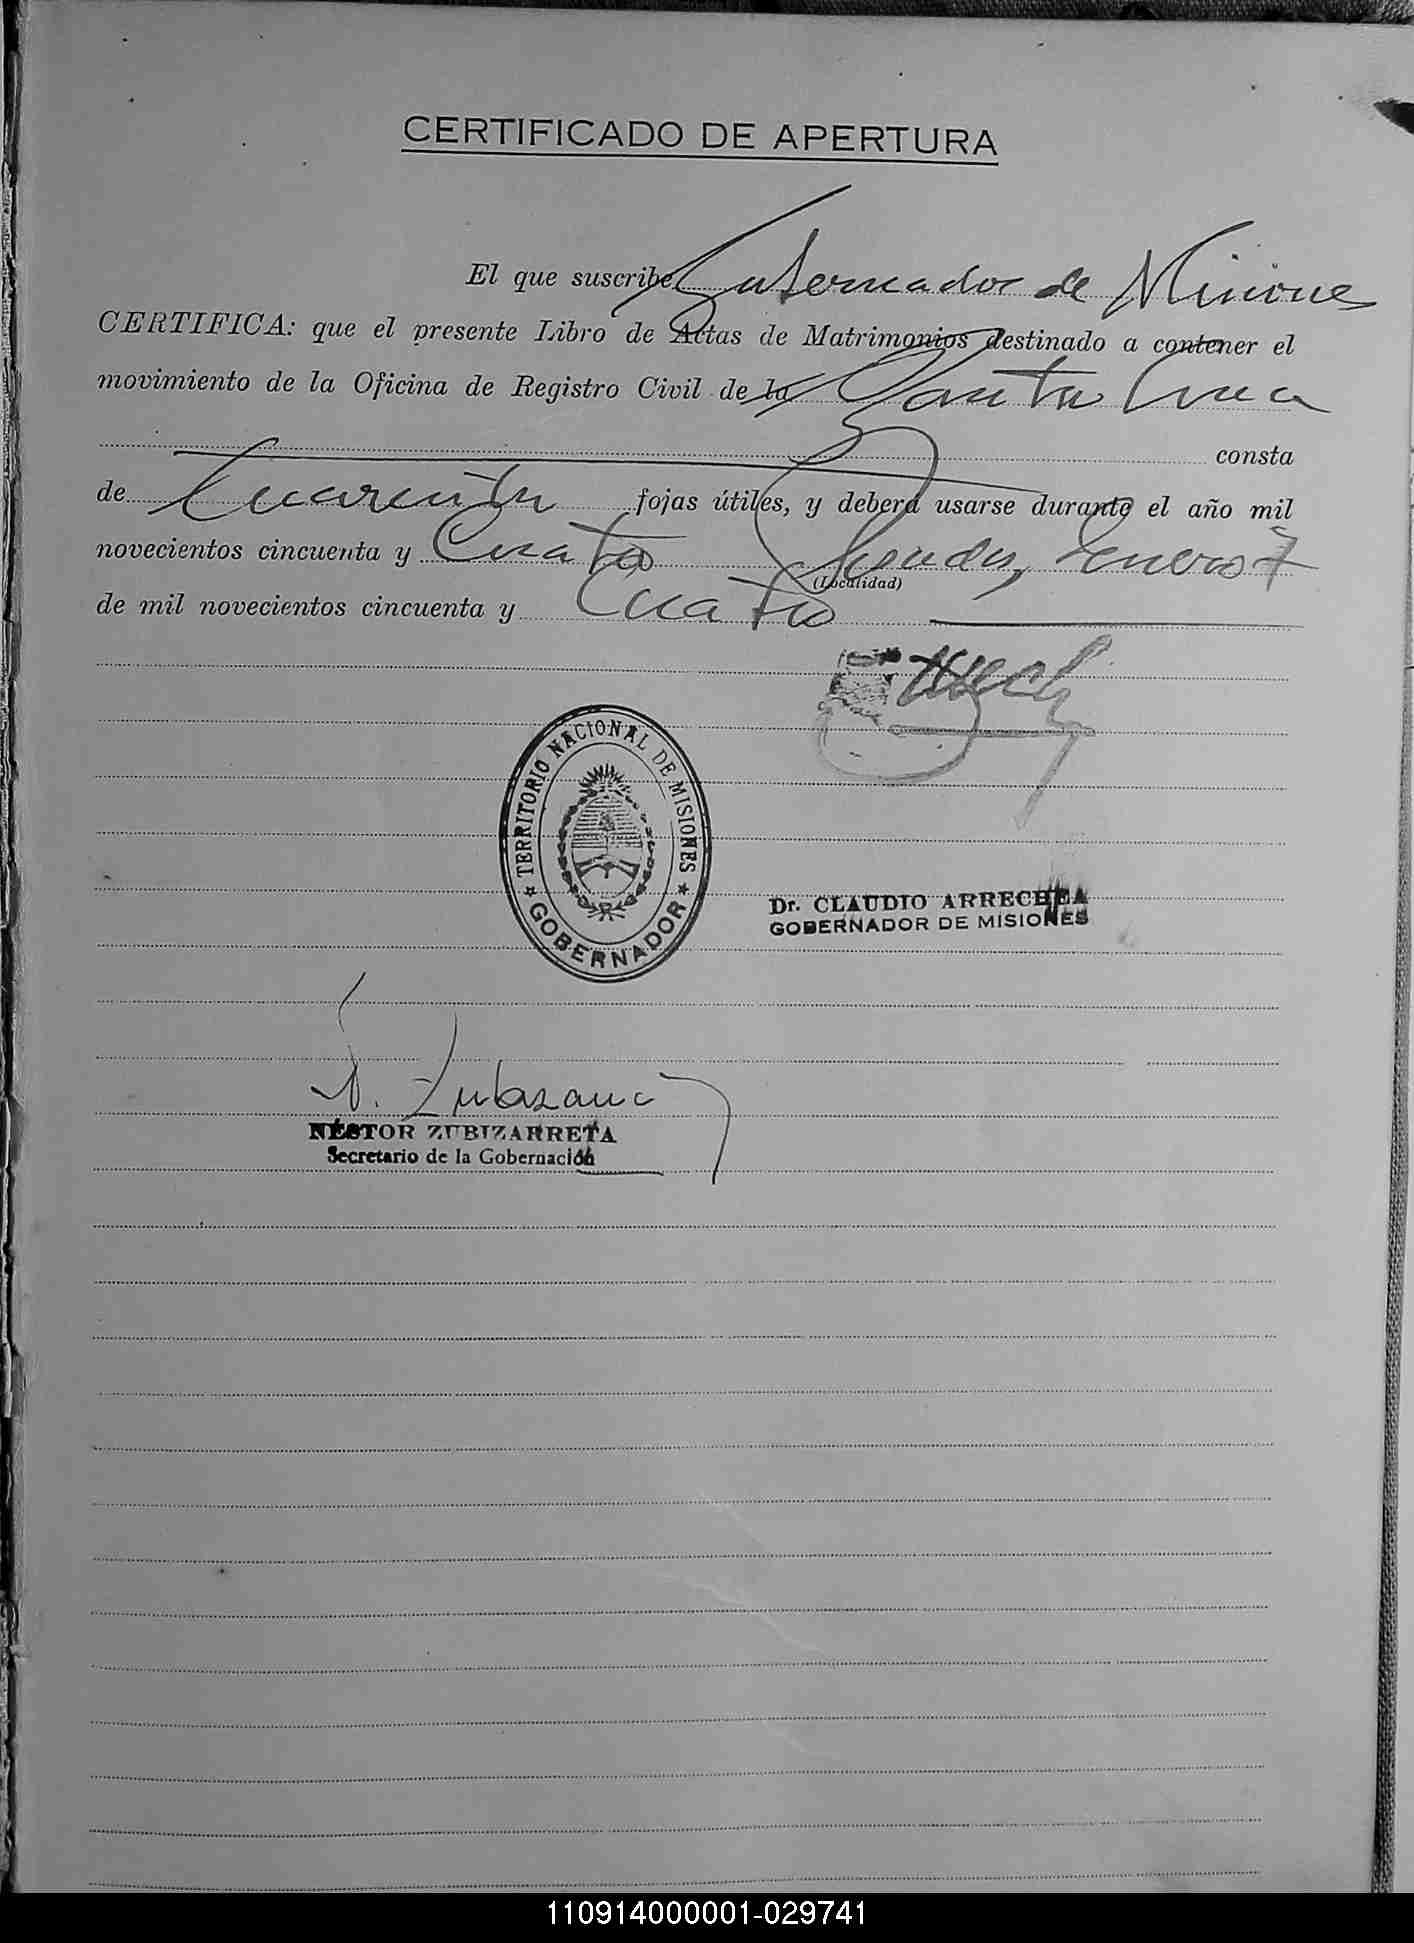 CERTIFICADO DE APERTURA
El que suscribe Gobernador de Misiones
CERTIFICA: que el presente Libro de Actas de Matrimonios destinado a contener el
movimiento de la Oficina de Registro Civil de la Santa Ana
consta
de Cuarenta fojas útiles, y deberá usarse durante el año mil
novecientos cincuenta y Cuatro Posadas, Enero 7
(Localidad)
de mil novecientos cincuenta y Cuatro
TERRITORIO NACIONAL DE MISIONES
GOBERNADOR
Dr. CLAUDIO ARRECHEA
GOBERNADOR DE MISIONES
N. Zubizarreta
NÉSTOR ZUBIZARRETA
Secretario de la Gobernación
110914000001-029741